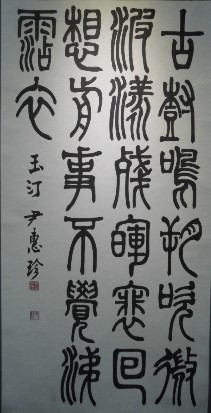 古樹鳴朔吹微
波漾殘暉裵回
想前事不覺涕
霑衣
玉汀 尹惠珍